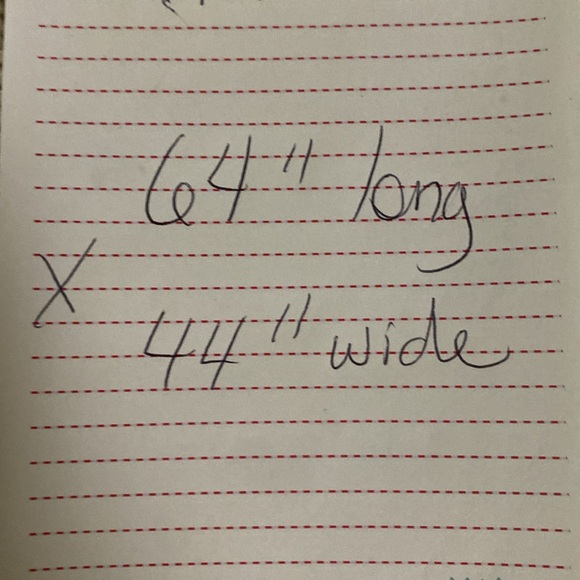 64" long
X
44" wide